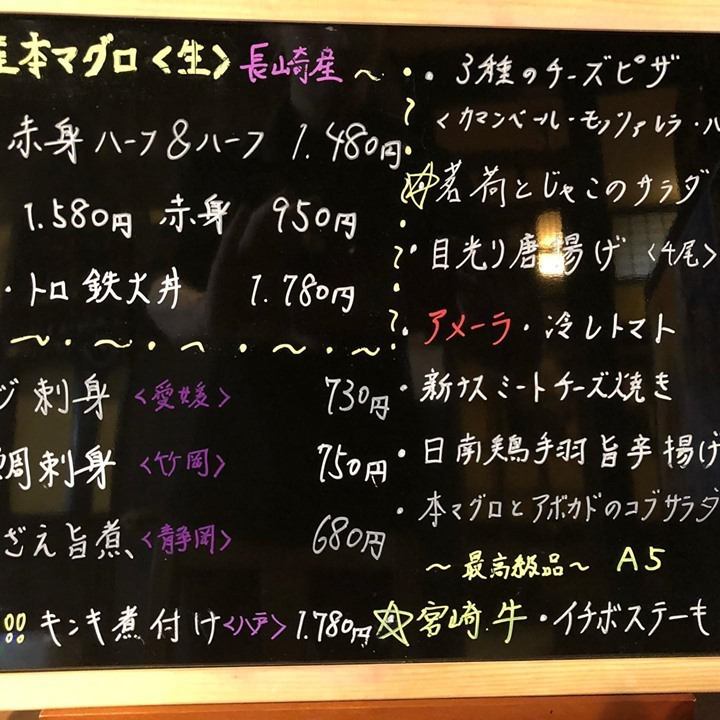 本マグロ〈生〉長崎産〜
赤身ハーフ&ハーフ 1.480円
1.580円 赤身 950円
・トロ鉄火丼 1.780円
ジ刺身〈愛媛〉 730円
鯛刺身〈竹岡〉 750円
ざえ旨煮〈静岡〉 680円
!! キンキ煮付け〈八戸〉 1.780円
・3種のチーズピザ
〈カマンベール・モッツァレラ・ハ
☆茗荷とじゃこのサラダ
・目光り唐揚げ〈4尾〉
・アメーラ・冷しトマト
・新ナスミートチーズ焼き
・日南鶏手羽旨辛揚げ
・本マグロとアボカドのコブサラダ
〜最高級品〜 A5
☆宮崎牛・イチボステーキ